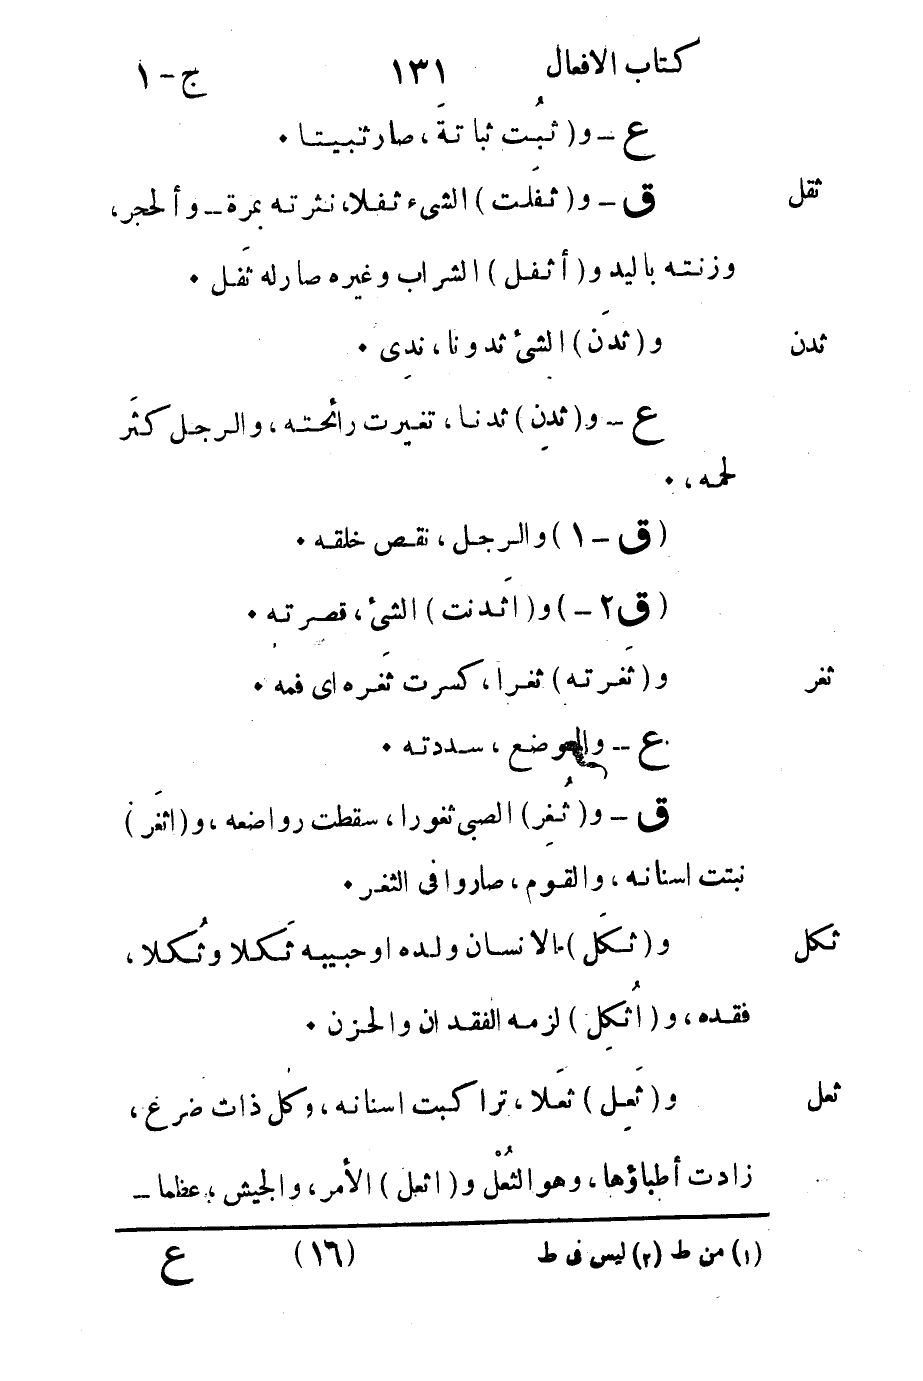 كتاب الافعال ١٣١ ج - ١
ع - و ( ثبُت ثباتةَ ، صار ثبيتا ٠
ثقل ق - و ( ثفَلت ) الشىء ثفلا، نثرته بمرة - وألحجر،
وزنته باليد و ( أثفل ) الشراب وغيره صارله ثفَل ٠
ثدن و ( ثدَن ) الشئ ثدونا ، ندِى ٠
ع - و ( ثدِن ) ثدنا ، تغيرت رائحته ، والرجل كثَر
لحمه ، ٠
( ق - ١ ) والرجل ، نقص خلقه ٠
( ق ٢ - ) و ( اثَدنت ) الشئ ، قصرته ٠
ثغر و ( ثغَرته ) ثغرا ، كسرت ثغَره اى فمه ٠
ع - والموضع ، سددته ٠
ق - و ( ثُغِر ) الصبى ثغورا ، سقطت رواضعه ، و ( اثغَر )
نبتت اسنانه ، والقوم ، صاروا فى الثغر ٠
ثكل و ( ثكَل ) الانسان ولده او حبيبه ثَكلا وثُكلا ،
فقده ، و ( اُثكِل ) لزمه الفقدان والحزن ٠
ثعل و ( ثَعِل ) ثعَلا ، تراكبت اسنانه ، وكل ذات ضرع ،
زادت أطباؤها ، وهو الثُعْل و ( اثعل ) الأمر ، والجيش ، عظما -
(١) من ط (٢) ليس فى ط (١٦) ع